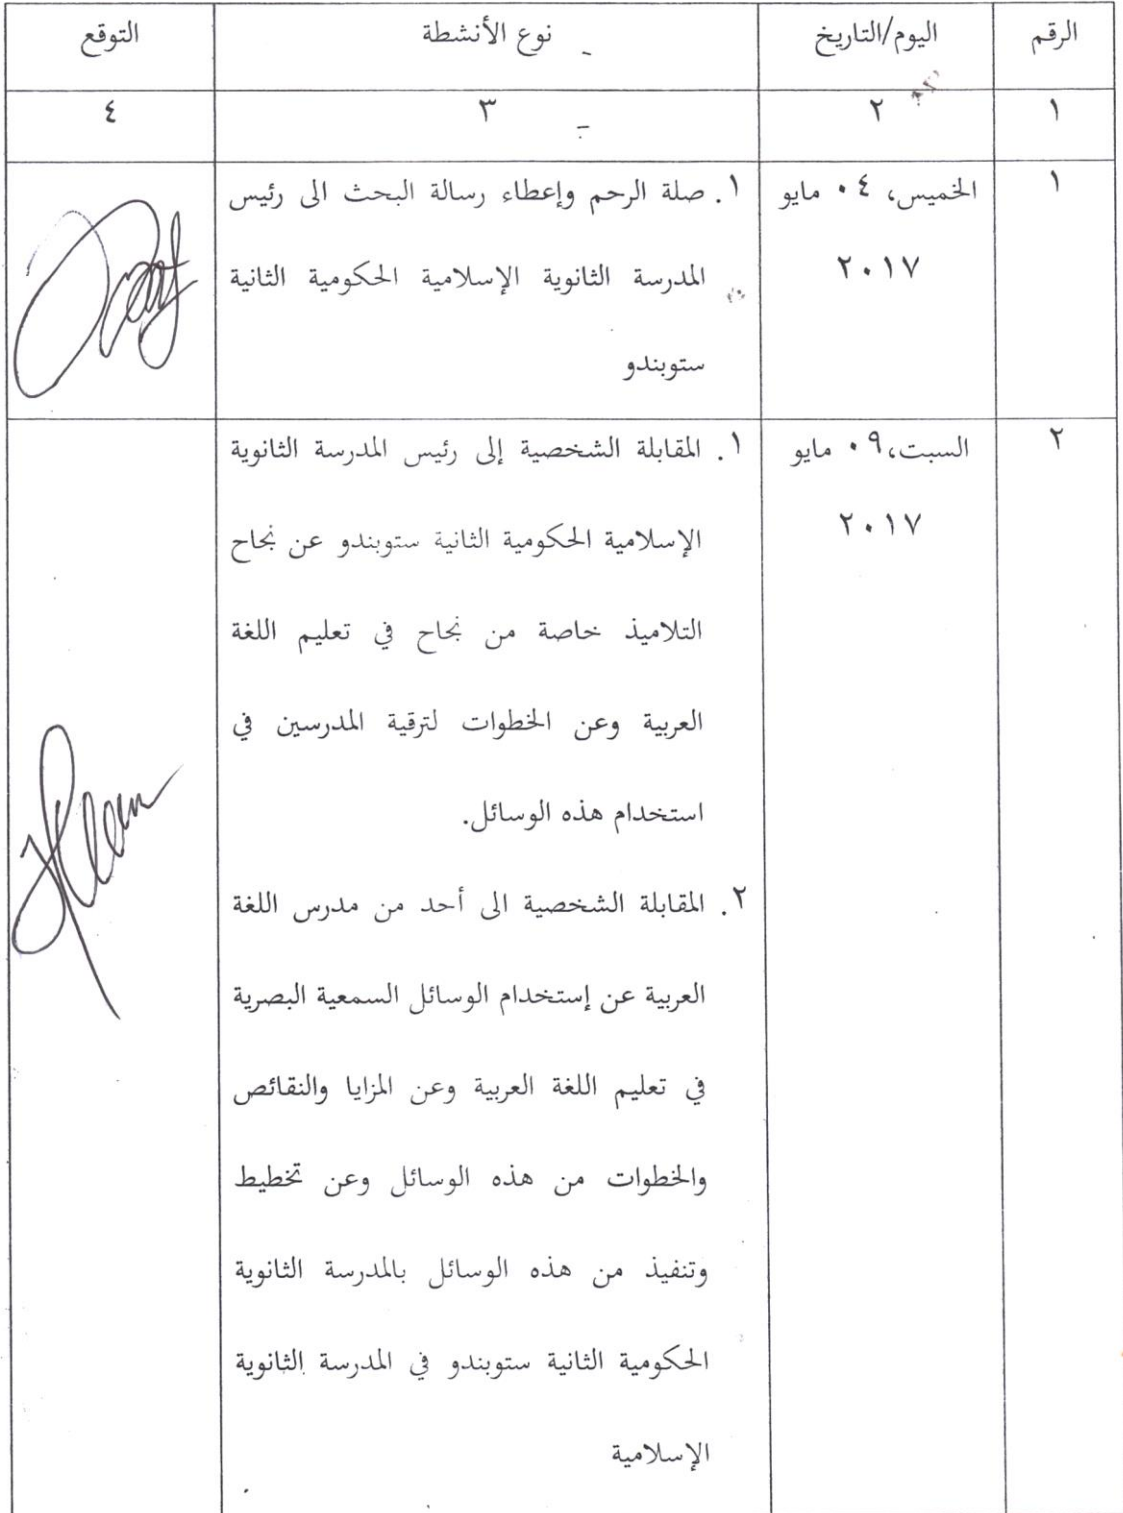 الرقم اليوم/التاريخ نوع الأنشطة التوقع
١ ٢ ٣ ٤
١ الخميس، ٠٤ مايو ١. صلة الرحم وإعطاء رسالة البحث الى رئيس
٢٠١٧ المدرسة الثانوية الإسلامية الحكومية الثانية
ستوبندو
٢ السبت، ٠٩ مايو ١. المقابلة الشخصية إلى رئيس المدرسة الثانوية
٢٠١٧ الإسلامية الحكومية الثانية ستوبندو عن نجاح
التلاميذ خاصة من نجاح في تعليم اللغة
العربية وعن الخطوات لترقية المدرسين في
استخدام هذه الوسائل.
٢. المقابلة الشخصية الى أحد من مدرس اللغة
العربية عن إستخدام الوسائل السمعية البصرية
في تعليم اللغة العربية وعن المزايا والنقائص
والخطوات من هذه الوسائل وعن تخطيط
وتنفيذ من هذه الوسائل بالمدرسة الثانوية
الحكومية الثانية ستوبندو في المدرسة الثانوية
الإسلامية